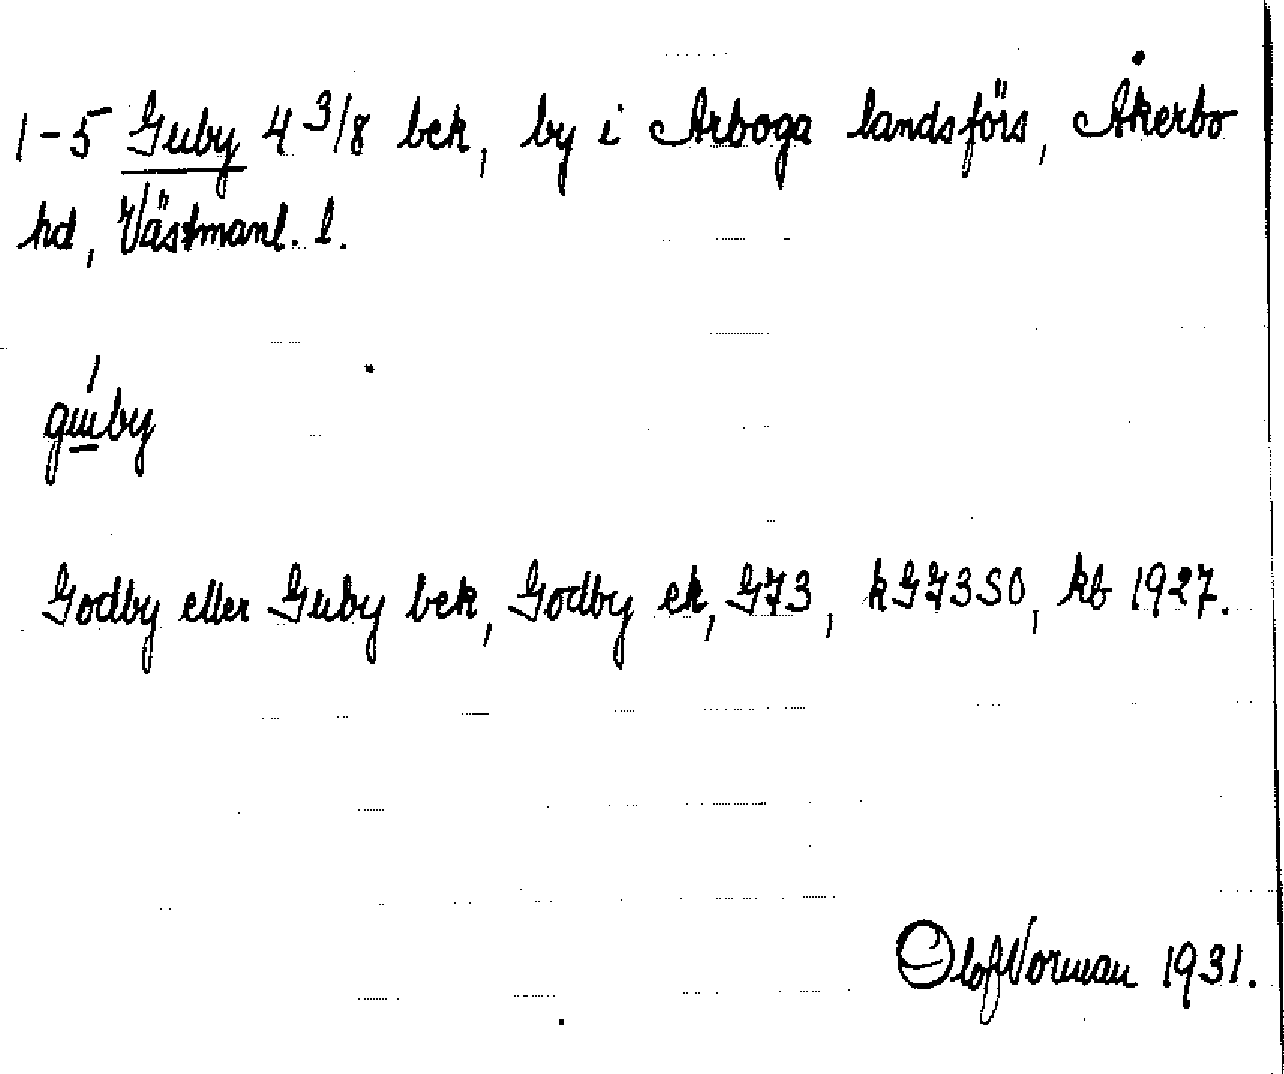 1-5 Guby 4 3/8 bek, by i Arboga landsförs, Åkerbo
hd, Västmanl. l.
gúby
Godby eller Guby bek, Godby ek, GJ3, kGJ3SO, kb 1927.
Olof Norman 1931.